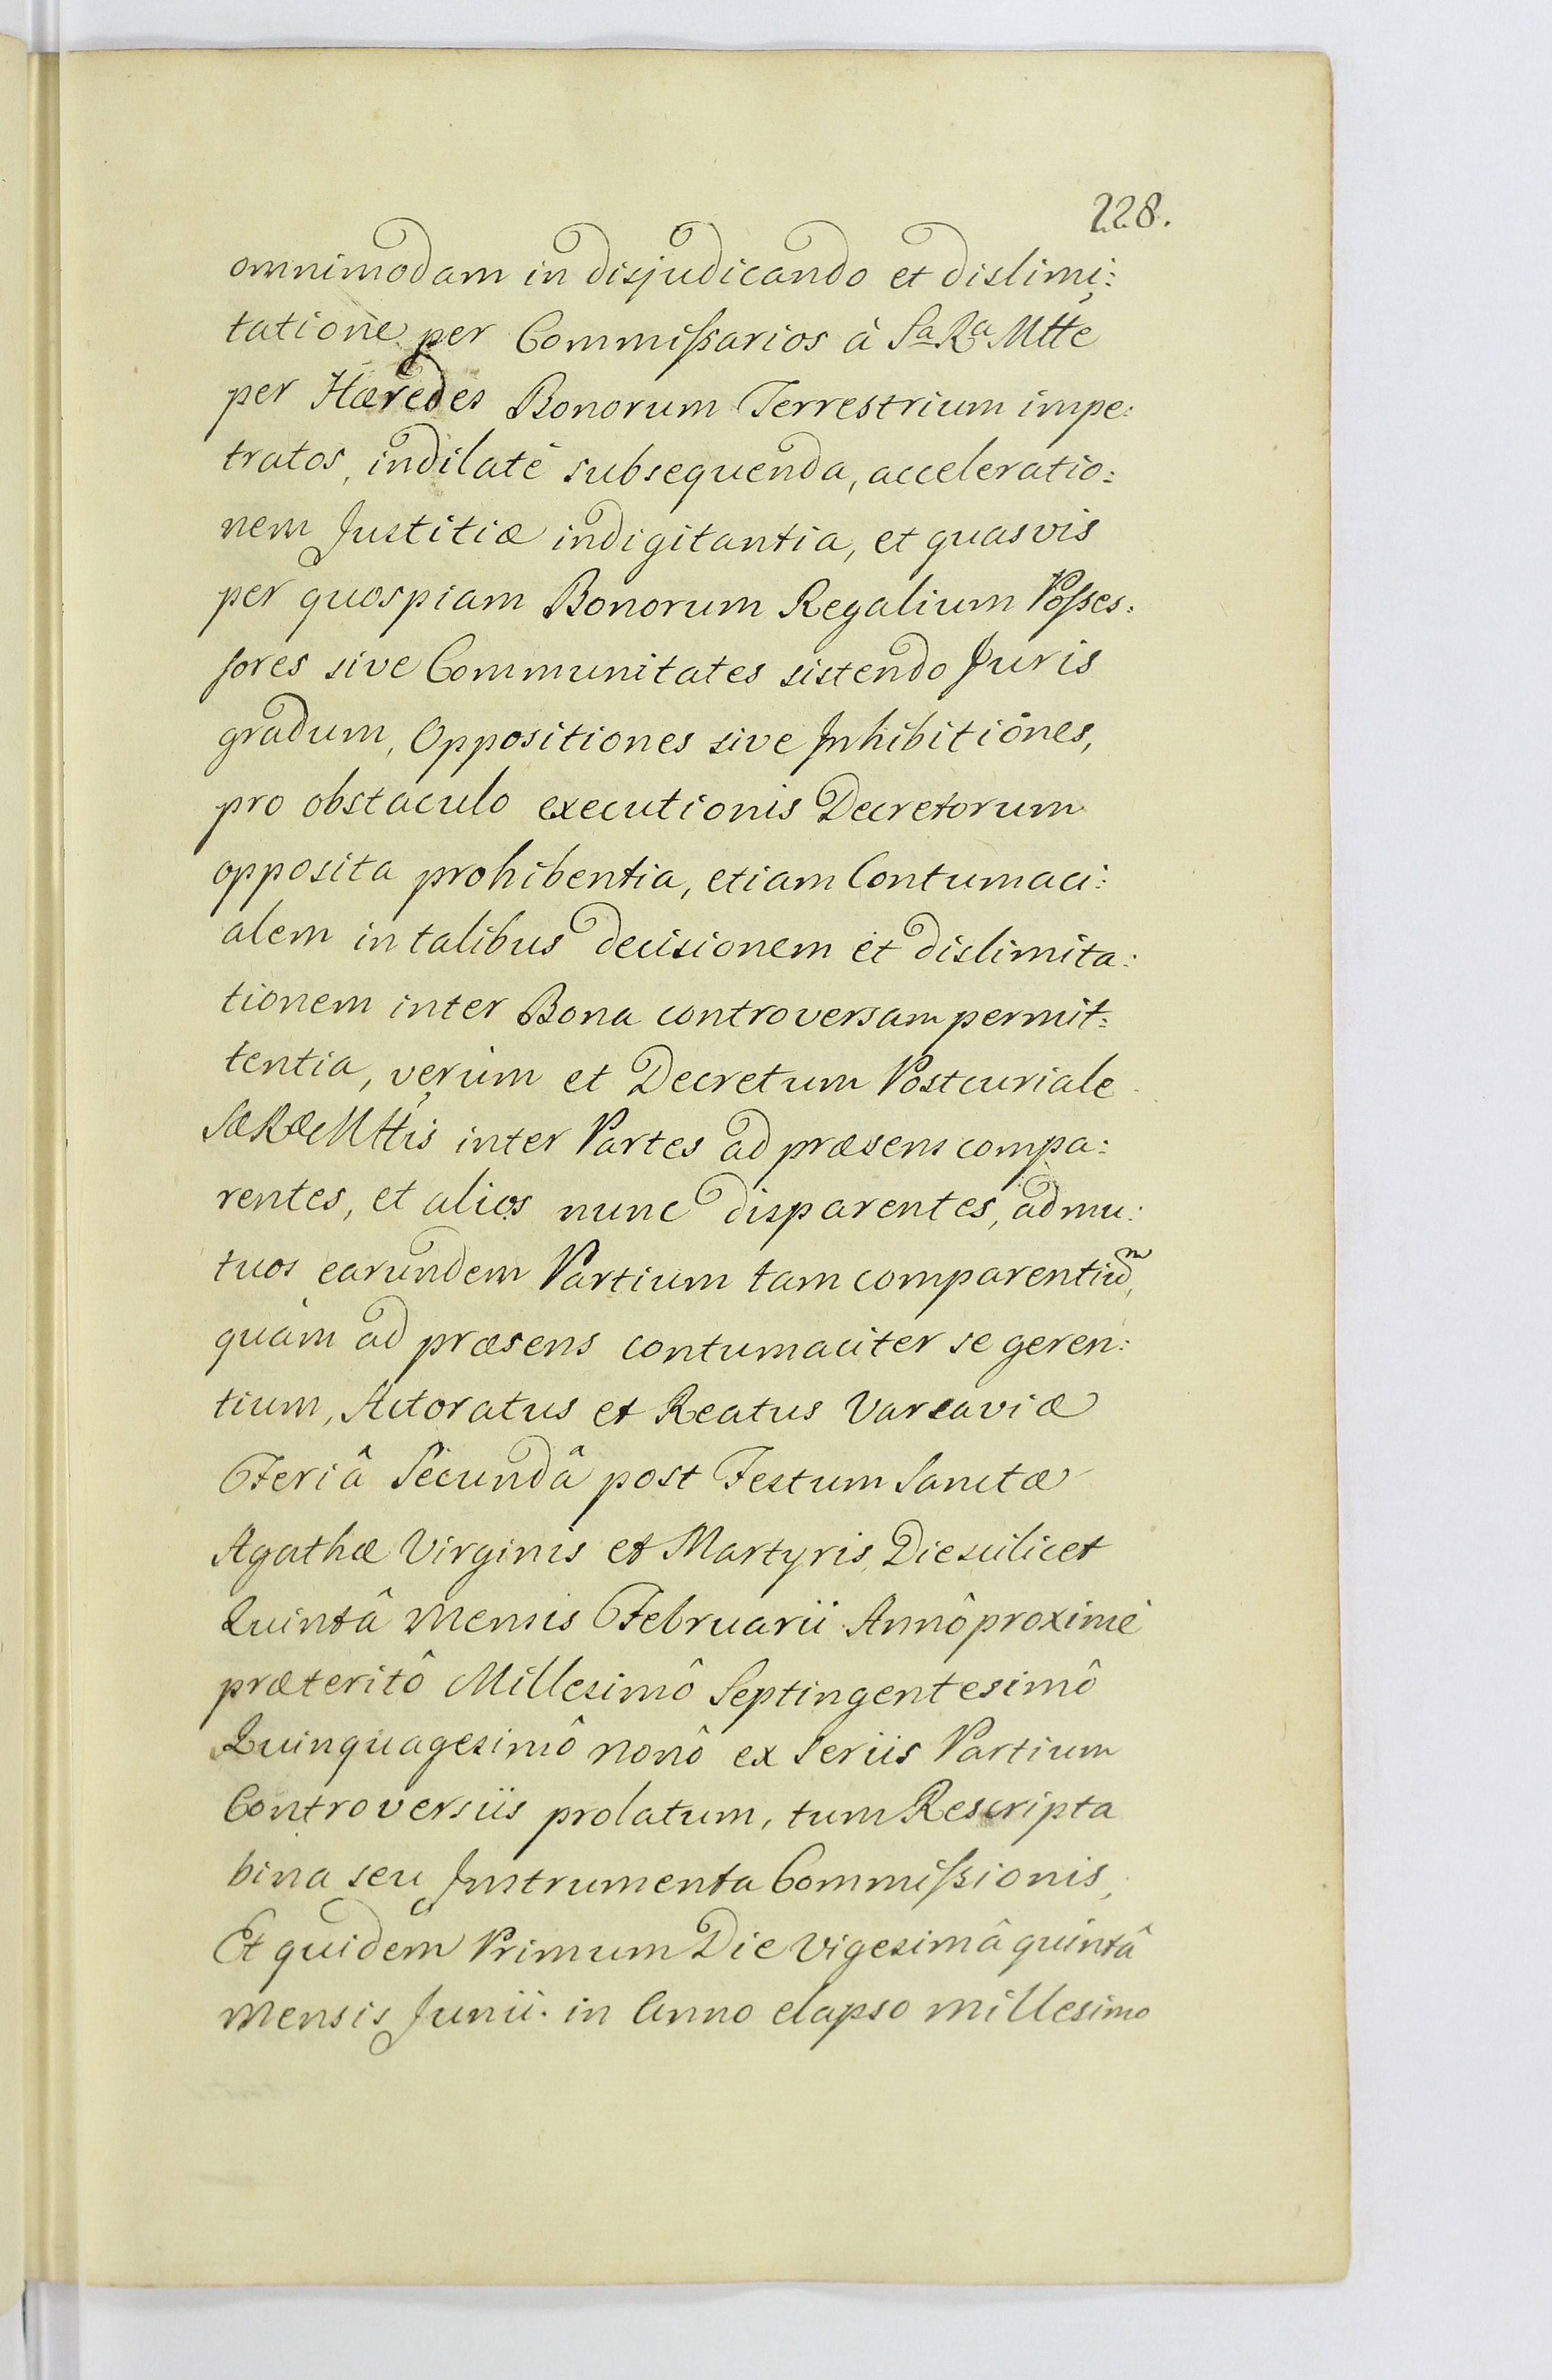 228.
omnimodam in disjudicando et dislimi:
tatione per Commißarios à Sa Ra Mtte
per Hæredes Bonorum Terrestrium impe:
tratos, indilatè subsequenda, acceleratio:
nem Justitiæ indigitantia, et quasvis
per quospiam Bonorum Regalium Poſses:
ſores sive Communitates sistendo Juris
gradum, Oppositiones sive Inhibitiones,
pro obstaculo executionis Decretorum
opposita prohibentia, etiam Contumaci:
alem in talibus decisionem et dislimita:
tionem inter Bona controversam permit:
tentia, verùm et Decretum Postcuriale
SæRæMttis inter Partes ad præsens compa:
rentes, et alios nunc disparentes, ad mu:
tuos earundem Partium tam comparentium,
quàm ad præsens contumaciter se geren:
tium, Actoratus et Reatus Varsaviæ
Feriâ Secundâ post Festum Sanctæ
Agathæ Virginis et Martyris, Die scilicet
Quintâ Mensis Februarii Annô proximè
præteritô Millesimô Septingentesimô
Quinquagesimô nonô ex Seriis Partium
Controversiis prolatum, tum Rescripta
bina seu Instrumenta Commißionis,
Et quidem Primum Die Vigesimâ quintâ
Mensis Junii. in Anno elapso millesimo